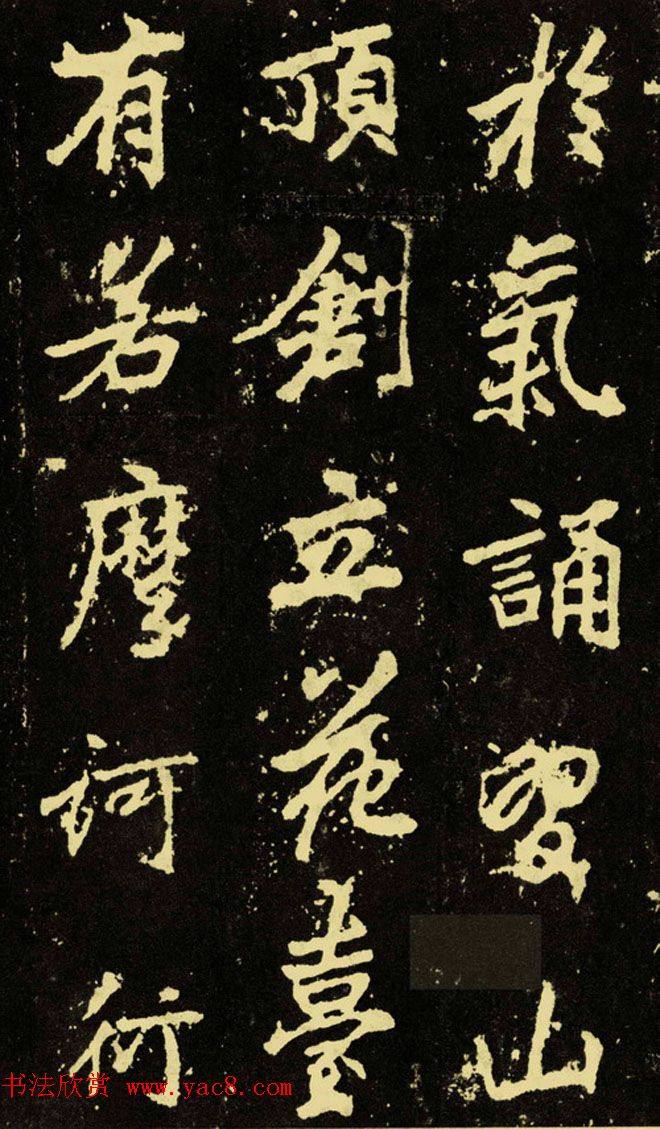 於氣誦習山
頂創立花臺
有若摩訶衍
书法欣赏 www.yac8.com